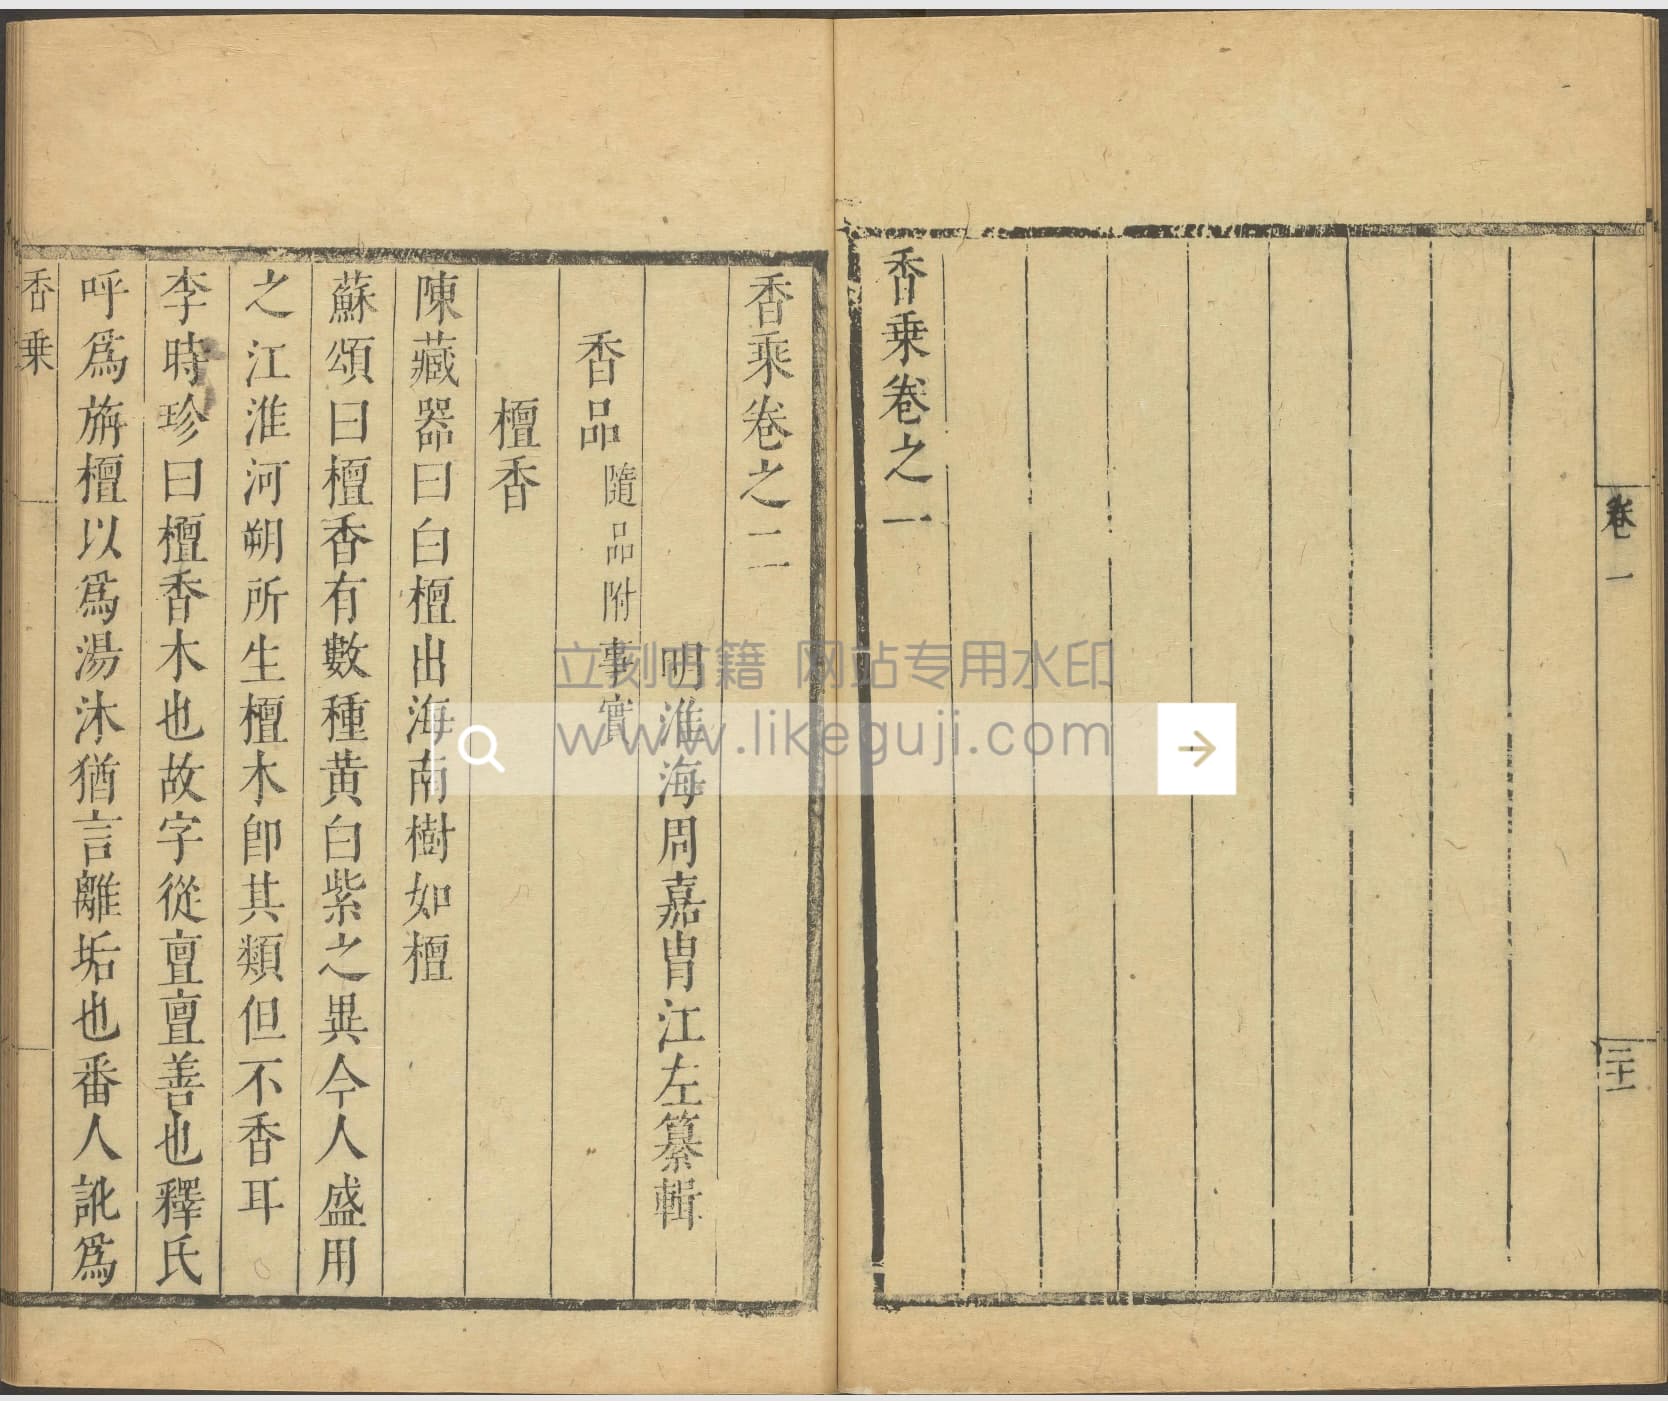 卷一
三十一
香乗卷之一
香乘卷之二
明淮海周嘉胄江左纂輯
香品隨品附事實
檀香
陳藏器曰白檀出海南樹如檀
蘇頌曰檀香有數種黃白紫之異今人盛用
之江淮河朔所生檀木卽其類但不香耳
李時珍曰檀香木也故字從亶亶善也釋氏
呼爲旃檀以爲湯沐猶言離垢也番人訛爲
香乗
立刻古籍 网站专用水印
www.likeguji.com